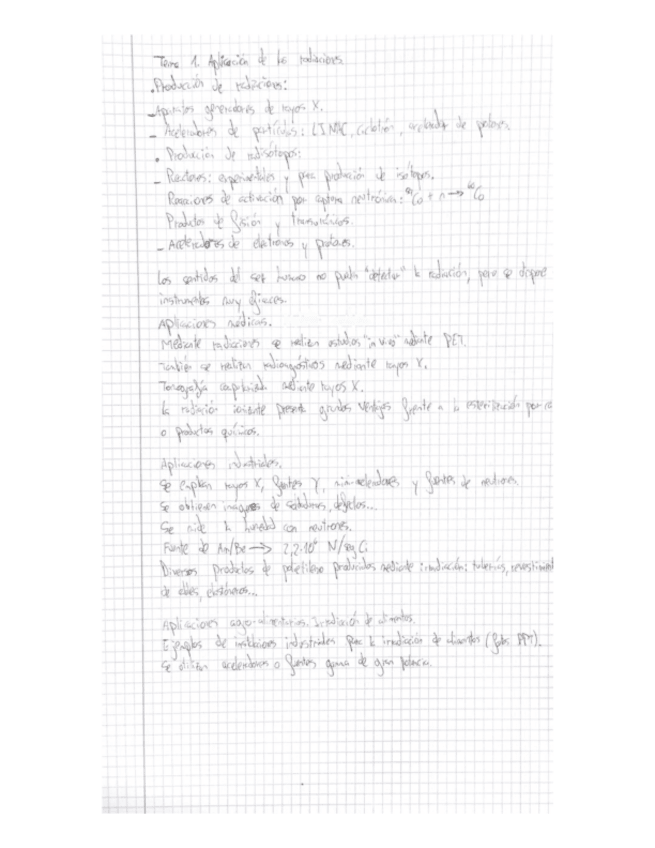 Tema 1. Aplicación de las radiaciones.
• Producción de radiaciones:
- Aparatos generadores de rayos X.
- Aceleradores de partículas: LINAC, ciclotrón, acelerador de protones.
• Producción de radisótopos:
- Reactores: experimentales y para producción de isótopos.
Reacciones de activación por captura neutrónica: ⁵⁹Co + n → ⁶⁰Co
Productos de fisión y transuránicos.
- Aceleradores de electrones y protones.
Los sentidos del ser humano no pueden "detectar" la radiación, pero se dispone
instrumentos muy eficaces.
Aplicaciones médicas.
Mediante radiaciones se realizan estudios "in vivo" mediante PET.
También se realizan radiodiagnósticos mediante rayos X.
Tomografía mediante rayos X.
La radiación ionizante presenta grandes ventajas frente a la esterilización por
o productos químicos.
Aplicaciones industriales.
Se emplean rayos X, fuentes γ, miniaceleradores y fuentes de neutrones.
Se obtienen imágenes de soldaduras, defectos...
Se mide la humedad con neutrones.
Fuente de Am/Be → 2,2·10⁶ N/seg Ci
Diversos productos de polietileno producidos mediante irradiación: tuberías, revestimient
de cables, elastómeros...
Aplicaciones agro-alimentarias. Irradiación de alimentos.
Ejemplos de instalaciones industriales para la irradiación de alimentos (fotos PPT).
Se utilizan aceleradores o fuentes gamma de gran potencia.